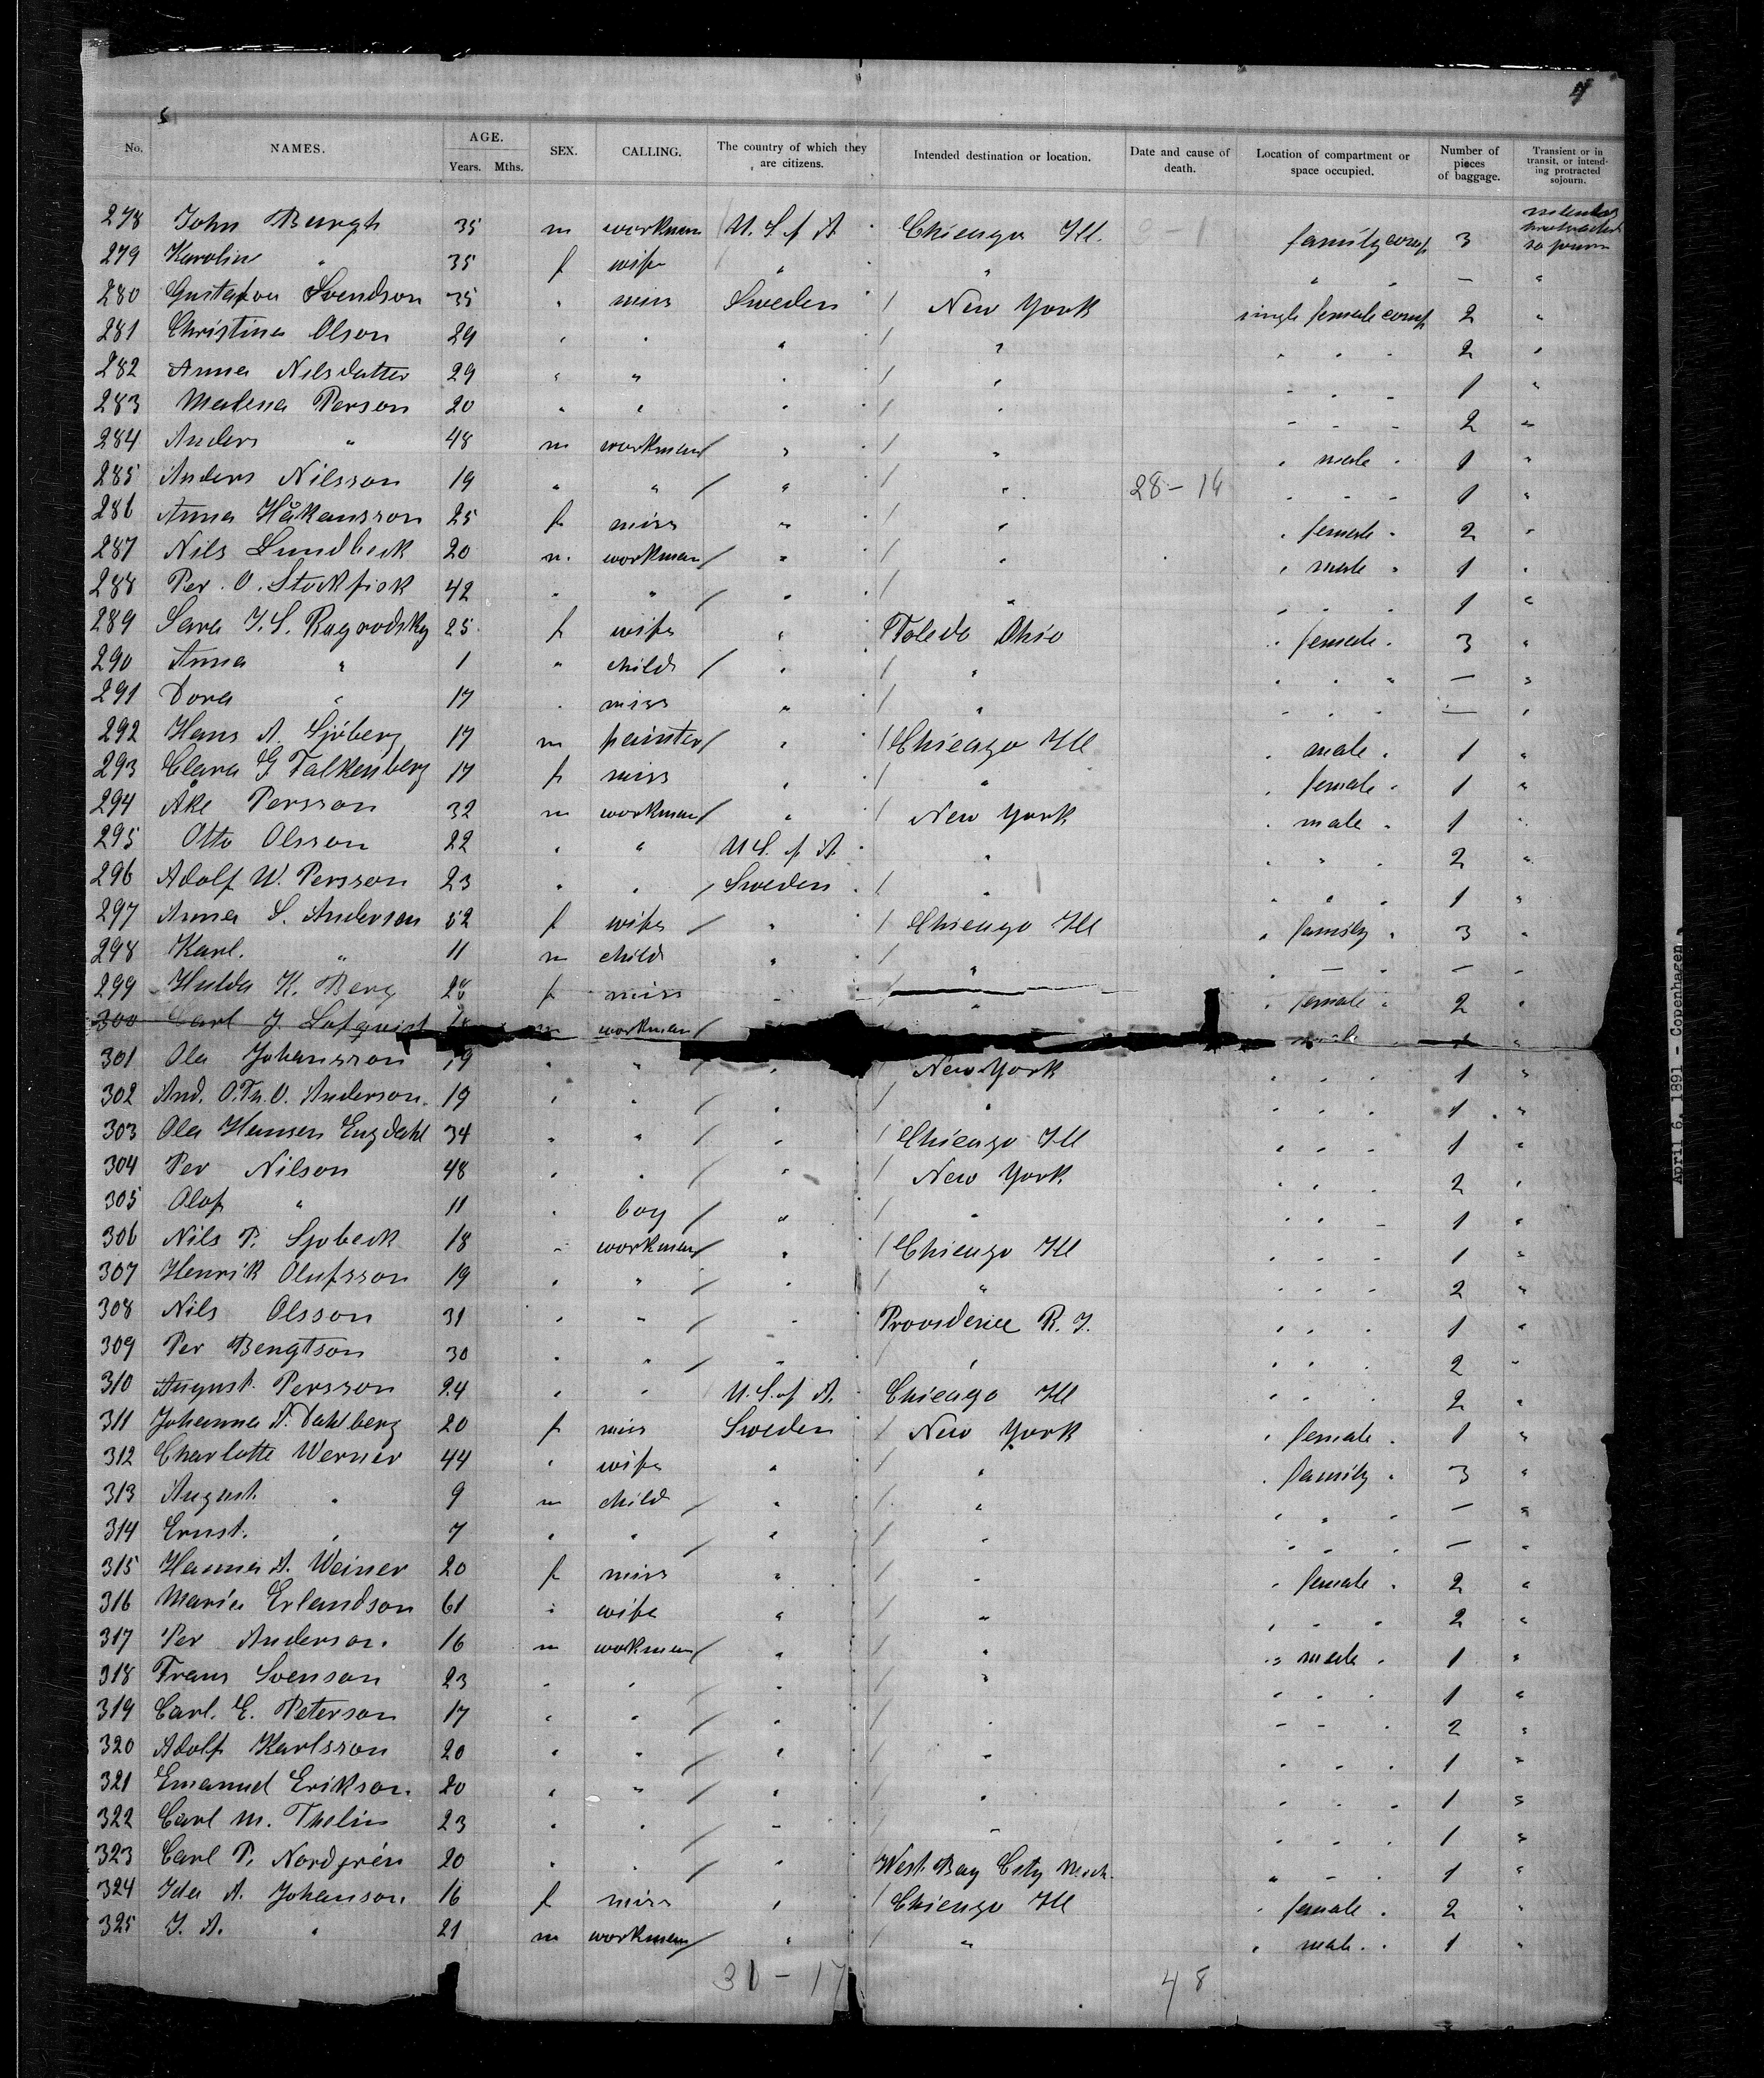 4
No. NAMES. AGE. Years. Mths. SEX. CALLING. The country of which they are citizens. Intended destination or location. Date and cause of death. Location of compartment or space occupied. Number of pieces of baggage. Transient or in transit, or intending protracted sojourn.
278 John Burgh 35 m workman U. S. of A Chicago Ill. family comp 3 protracted sojourn
279 Karolin " 35 f wife " " " " — "
280 Svendson 35 " miss Sweden / New York single female comp 2 "
281 Christina Olson 29 " " " / " " " " 2 "
282 Anna Nilsdatter 29 " " " / " " " " 1 "
283 Person 20 " " " / " " " " 2 "
284 Anders " 48 m workman / " / " " male " 1 "
285 Anders Nilsson 19 " " / " / " 28 – 14 " " " 1 "
286 Anna Håkansson 25 f miss " / " " female " 2 "
287 Nils Lundbeck 20 m. workman / " / " " male " 1 "
288 Per. O. Stockfisk 42 " " / " / " " " " 1 "
289 Sara 25 f wife " Toledo Ohio " female " 3 "
290 Anna " 1 " child / " / " " " " — "
291 Dora " 17 " miss " / " " " " — "
292 Hans A. Sjöberg 17 m painter / " / Chicago Ill " male " 1 "
293 Clara G Falkenberg 17 f miss " / " " female " 1 "
294 Åke Persson 32 m workman / " / New York " male " 1 "
295 Otto Olsson 22 " " U S. of A. " " " " 2 "
296 Adolf W. Persson 23 " " / Sweden / " " " " 1 "
297 Anna S. Anderson 52 f wife / " / Chicago Ill " family " 3 "
298 Karl. " 11 m child " / " " — " — "
299 Hulda K. Berg f miss " / " " female " 2 "
300 Carl J. Lofquist m workman /
301 Ola Johansson 19 " " / " / New York " " " 1 "
302 And. O. Anderson. 19 " " / " / " " " " 1 "
303 Ola Hansen Engdahl 34 " " / " / Chicago Ill " " " 1 "
304 Per Nilson 48 " " / " / New York " " " 2 "
305 Olof " 11 " boy / " / " " " " 1 "
306 Nils P. Sjobeck 18 " workman / " / Chicago Ill " " " 1 "
307 Henrik Olufsson 19 " " / " / " " " " 2 "
308 Nils Olsson 31 " " / " Providence R. I. " " " 1 "
309 Per Bengtson 30 " " / " / " " " " 2 "
310 August. Persson 24 " " U. S. of A. Chicago Ill " " " 2 "
311 Johanna A. Dahlberg 20 f miss Sweden / New York " female " 1 "
312 Charlotte Werner 44 " wife " / " " family " 3 "
313 August. " 9 m child / " / " " " " — "
314 Ernst. " 7 " " / " / " " " " — "
315 Hanna A. Weiner 20 f miss " / " " female " 2 "
316 Maria Erlandson 61 " wife " / " " " " 2 "
317 Per Anderson. 16 m workman / " / " " male " 1 "
318 Frans Svenson 23 " " / " / " " " " 1 "
319 Carl. E. Peterson 17 " " / " / " " " " 2 "
320 Adolf Karlsson 20 " " / " / " " " " 1 "
321 Emanuel Erikson. 20 " " / " / " " " " 1 "
322 Carl M. Thelin 23 " " / " / " " " " 1 "
323 Carl P. Nordgrén 20 " " / " West. Bay City Mich. " " " 1 "
324 Ida A. Johanson. 16 f miss " / Chicago Ill " female " 2 "
325 J. A. " 21 m workman / " / " " male " 1 "
31 – 17 48
April 6, 1891 - Copenhagen